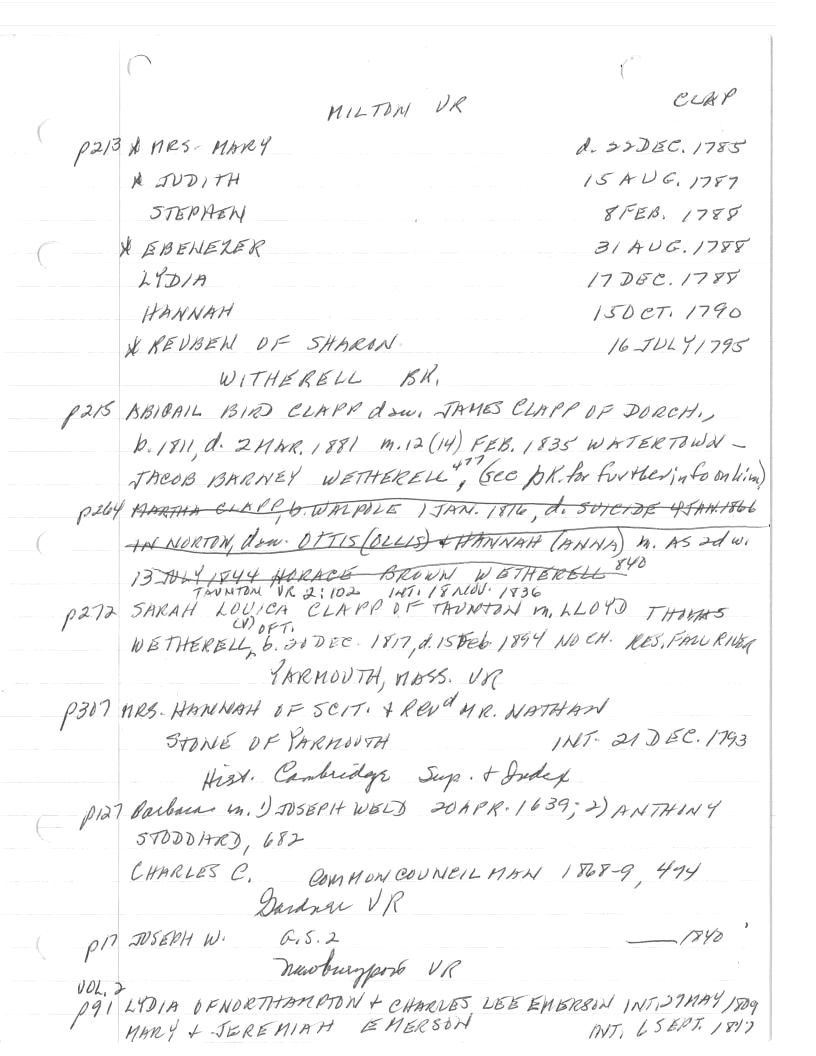 MILTON VR CLAP
p213 * MRS. MARY d. 22 DEC. 1785
* JUDITH 15 AUG. 1787
STEPHEN 8 FEB. 1788
* EBENEZER 31 AUG. 1788
LYDIA 17 DEC. 1788
HANNAH 15 OCT. 1790
* REUBEN OF SHARON 16 JULY 1795
WITHERELL BK.
p215 ABIGAIL BIRD CLAPP dau. JAMES CLAPP OF DORCH.,
b. 1811, d. 2 MAR. 1881 m. 12 (14) FEB. 1835 WATERTOWN –
JACOB BARNEY WETHERELL 477, (see bk. for further info on him)
p264 MARTHA CLAPP, b. WALPOLE 1 JAN. 1816, d. SUICIDE 4 JAN. 1866
IN NORTON, dau. OTTIS (OLLIS) & HANNAH (ANNA) m. AS 2d w.
13 JULY 1844 HORACE BROWN WETHERELL 840
TAUNTON VR 2:102 INT. 18 NOV. 1836
p272 SARAH LOUICA CLAPP OF TAUNTON m. LLOYD THOMAS
(V) OF T.
WETHERELL, b. 20 DEC. 1817, d. 15 Feb. 1894 NO CH. RES. FALL RIVER
YARMOUTH, MASS. VR
p307 MRS. HANNAH OF SCIT. & REVd MR. NATHAN
STONE OF YARMOUTH INT. 21 DEC. 1793
Hist. Cambridge Sup. & Index
p127 Barbara m. 1) JOSEPH WELD 20 APR. 1639; 2) ANTHONY
STODDARD, 682
CHARLES C. COMMON COUNCILMAN 1868-9, 474
Gardner VR
p17 JOSEPH W. G.S.2 — 1840
Newburyport VR
VOL. 2
p91 LYDIA OF NORTHAMPTON & CHARLES LEE EMERSON INT. 27 MAY 1809
MARY & JEREMIAH EMERSON INT. 6 SEPT. 1817